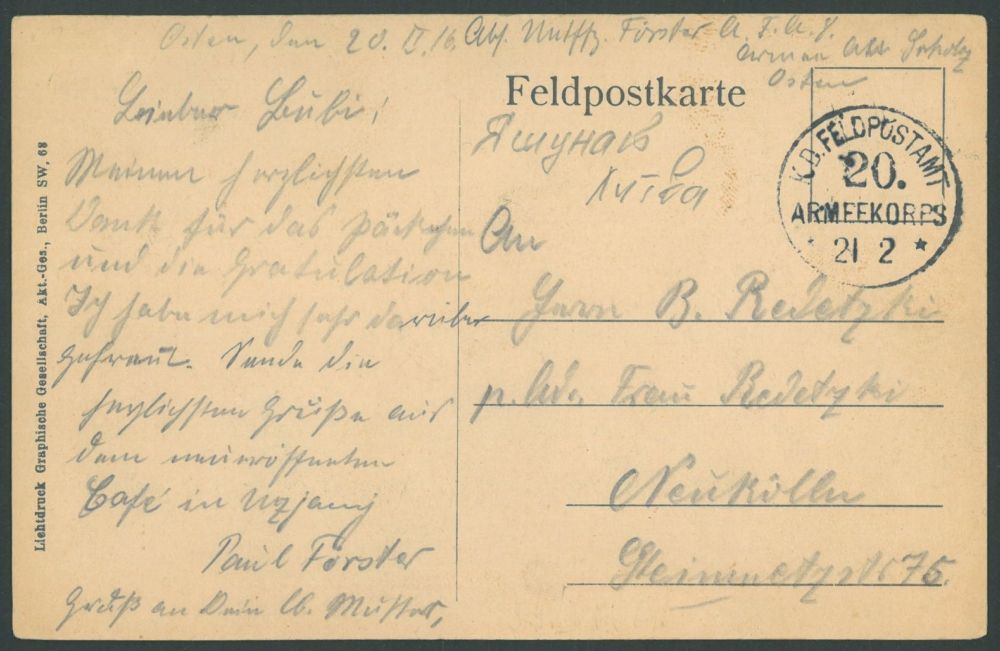 Osten, den 20. II. 16. Abs. Untffz. Förster A. F. A. 8.
Armee Abt. Scholtz
Osten
Feldpostkarte
K.D. FELDPOSTAMT
20.
ARMEEKORPS
* 21 2 *
Яшунав
Литва
Lieber Bubi!
Meinen herzlichsten
Dank für das Päckchen
und die Gratulation
Ich habe mich sehr darüber
gefreut. Sende die
herzlichsten Grüße aus
dem neueröffneten
Café in Uzjany
Paul Förster
Gruß an Dein lb. Mutter,
An
Herrn B. Redetzki
p. Adr. Frau Redetzki
Neukölln
Steinmetzstr 75.
Lichtdruck Graphische Gesellschaft, Akt.-Ges., Berlin SW, 68